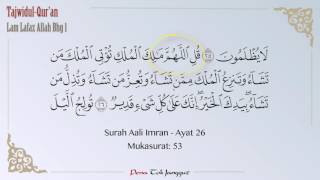 Tajwidul-Qur'an
Lam Lafaz Allah Bhg 1
لَا يُظْلَمُونَ ۝٢٥ قُلِ اللَّهُمَّ مَالِكَ الْمُلْكِ تُؤْتِي الْمُلْكَ مَن
تَشَاءُ وَتَنزِعُ الْمُلْكَ مِمَّن تَشَاءُ وَتُعِزُّ مَن تَشَاءُ وَتُذِلُّ مَن
تَشَاءُ بِيَدِكَ الْخَيْرُ إِنَّكَ عَلَىٰ كُلِّ شَيْءٍ قَدِيرٌ ۝٢٦ تُولِجُ اللَّيْلَ
Surah Aali Imran - Ayat 26
Mukasurat: 53
Pena Tok Janggut